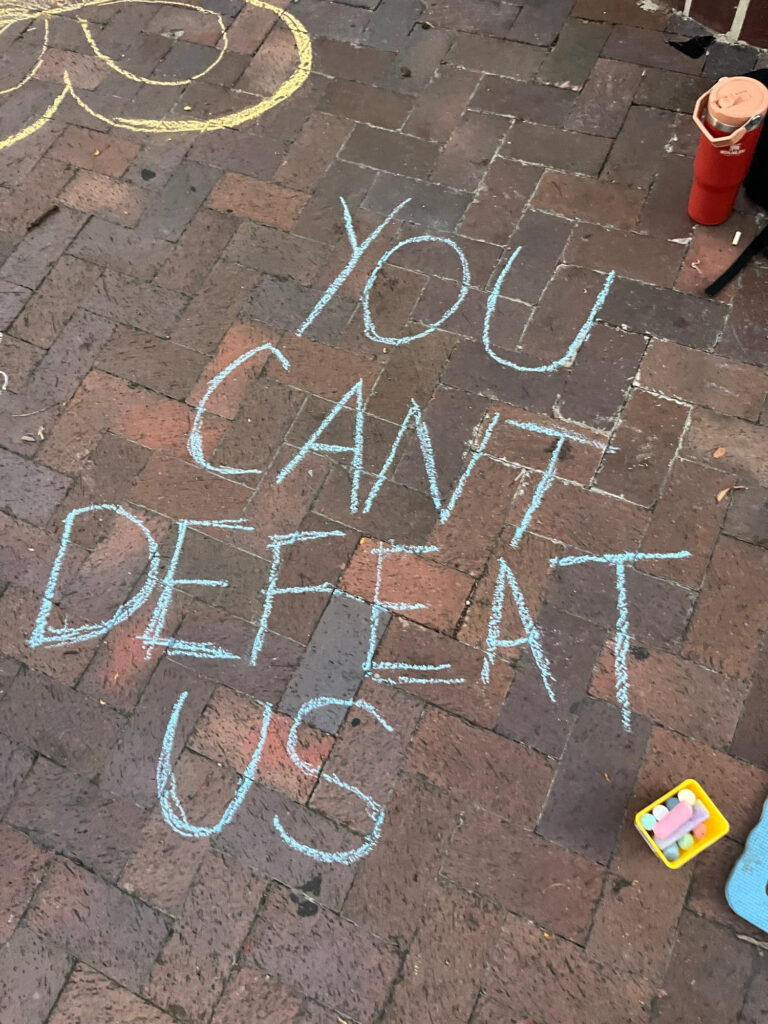 YOU
CAN'T
DEFEAT
US